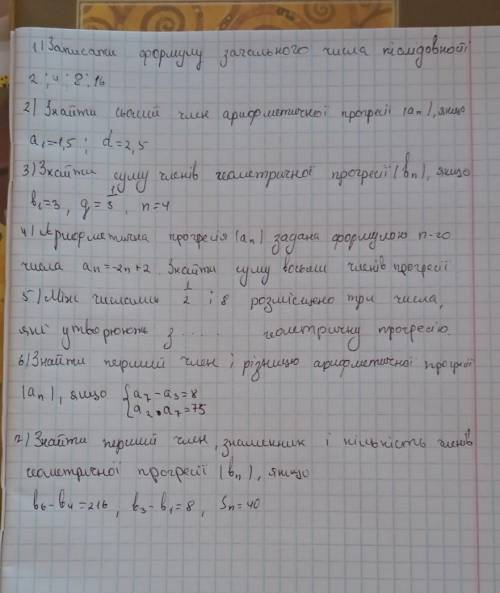 1) Записати формулу загального числа послідовності
2; 4; 8; 16
2) Знайти сьомий член арифметичної прогресії (an), якщо
a1=-1,5; d=2,5
3) Знайти суму членів геометричної прогресії (bn), якщо
b1=3, q=1/3, n=4
4) Арифметична прогресія (an) задана формулою n-го
числа an=-2n+2. Знайти суму восьми членів прогресії
5) Між числами 1/2 і 8 розміщено три числа,
які утворюють з ..... геометричну прогресію.
6) Знайти перший член і різницю арифметичної прогресії
(an), якщо {a7-a3=8
a2•a7=75
7) Знайти перший член, знаменник і кількість членів
геометричної прогресії (bn), якщо
b6-b4=216, b3-b1=8, Sn=40